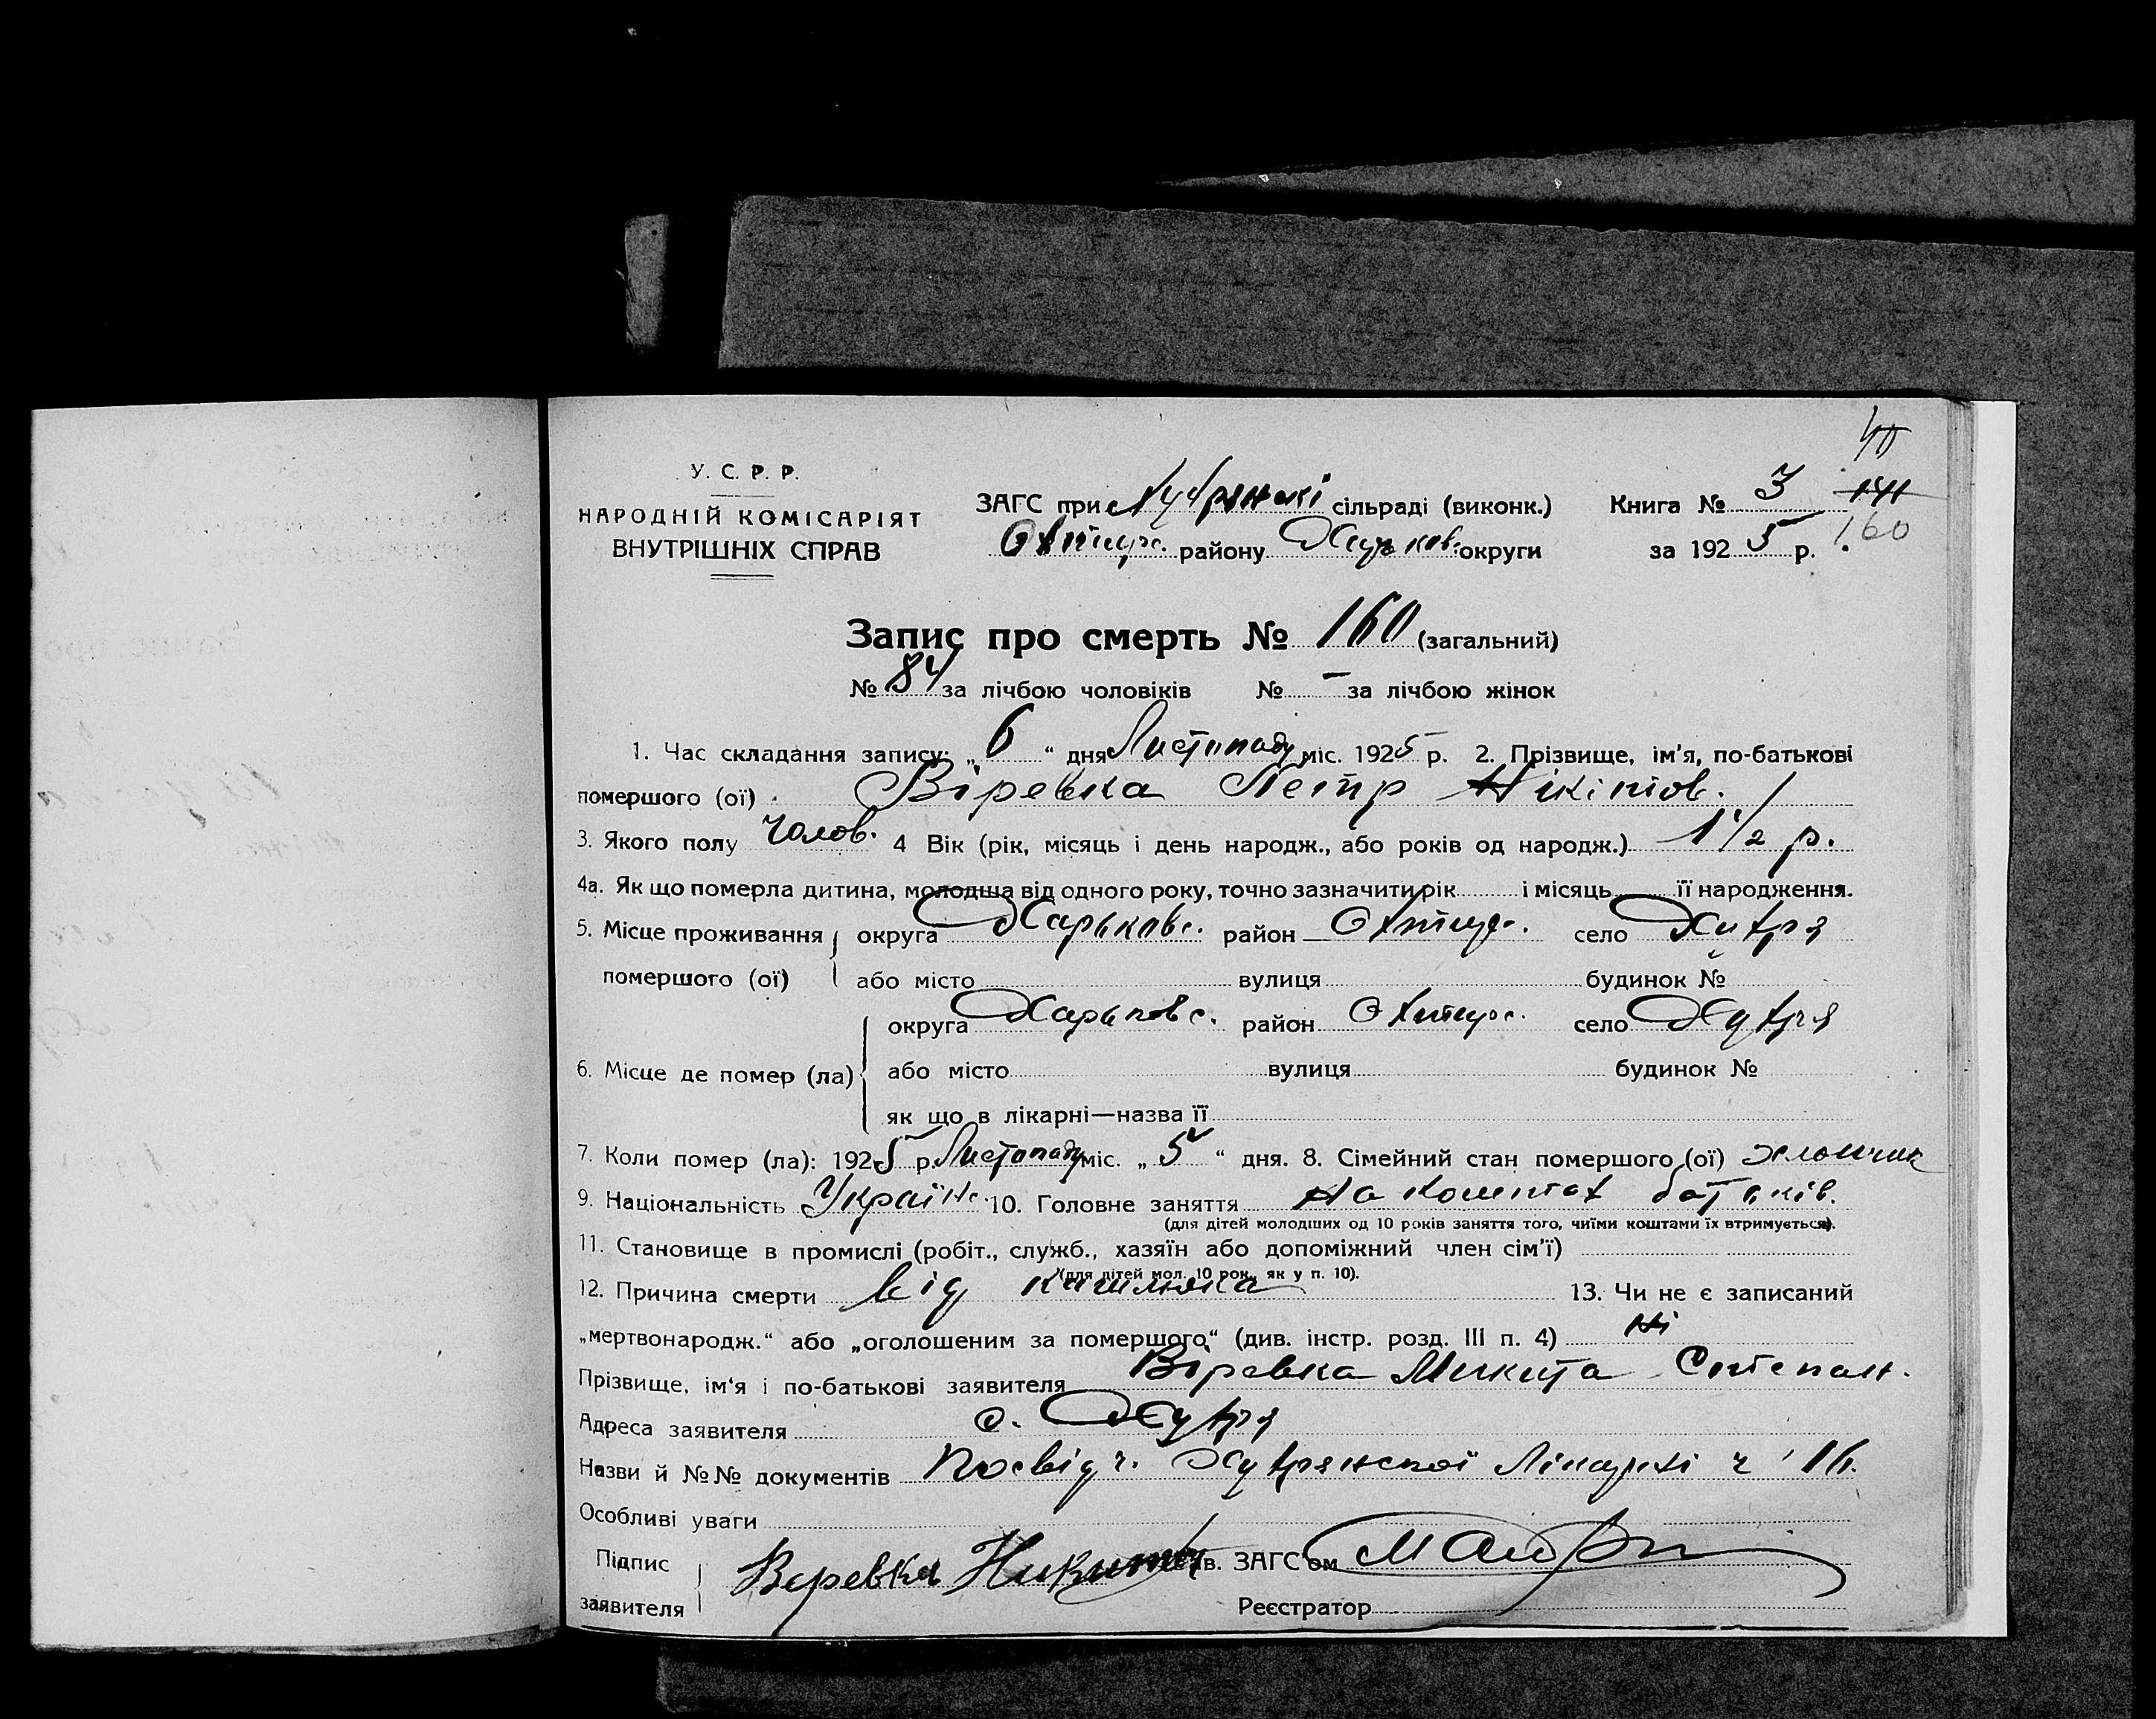 У. С. Р. Р.
НАРОДНІЙ КОМІСАРІЯТ
ВНУТРІШНІХ СПРАВ
ЗАГС при сільраді (виконк.)
Охтирс. району Харьков. округи
Книга № 3
за 1925 р.
40
141
160
Запис про смерть № 160 (загальний)
№ 84 за лічбою чоловіків № – за лічбою жінок
1. Час складання запису: „ 6 “ дня Листопаду міс. 1925 р. 2. Прізвище, ім'я, по-батькові
помершого (ої) Віревка Петр Нікітов.
3. Якого полу чолов. 4 Вік (рік, місяць і день народж., або років од народж.) 1 1/2 р.
4а. Як що померла дитина, молодша від одного року, точно зазначити рік і місяць її народження.
5. Місце проживання помершого (ої) округа Харьковс. район Охтирс. село Хухря
або місто вулиця будинок №
6. Місце де помер (ла) округа Харьковс. район Охтирс. село Хухря
або місто вулиця будинок №
як що в лікарні—назва її
7. Коли помер (ла): 1925 р. Листопаду міс. „ 5 “ дня. 8. Сімейний стан помершого (ої) хлопчик
9. Національність Україн. 10. Головне заняття На коштах батьків.
(для дітей молодших од 10 років заняття того, чиїми коштами їх втримується).
11. Становище в промислі (робіт., служб., хазяїн або допоміжний член сім'ї)
(для дітей мол. 10 рок., як у п. 10).
12. Причина смерти від кашлюка 13. Чи не є записаний
„мертвонародж.“ або „оголошеним за помершого“ (див. інстр. розд. III п. 4) Ні
Прізвище, ім'я і по-батькові заявителя Віревка Микита Степан.
Адреса заявителя с. Хухря
Назви й №№ документів Посвідч. Хухрянської Лікарні ч 16.
Особливі уваги
Підпис заявителя Веревка Никита Зав. ЗАГС'ом
Реєстратор